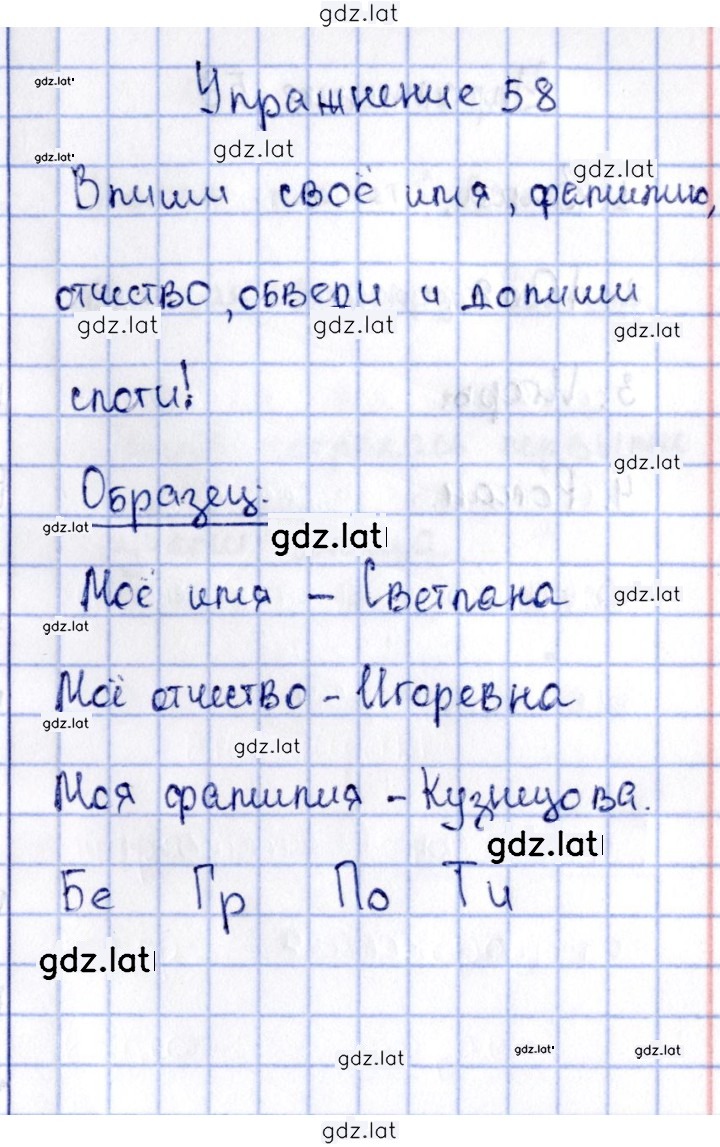 gdz.lat
gdz.lat
Упражнение 58
gdz.lat
gdz.lat
gdz.lat
Впиши своё имя, фамилию,
отчество, обведи и допиши
gdz.lat gdz.lat gdz.lat
слоги!
gdz.lat
Образец:
gdz.lat gdz.lat
Моё имя – Светлана gdz.lat
gdz.lat
Моё отчество – Игоревна
gdz.lat
gdz.lat
Моя фамилия – Кузнецова.
gdz.lat
Бе Гр По Ти
gdz.lat
gdz.lat gdz.lat gdz.lat
gdz.lat